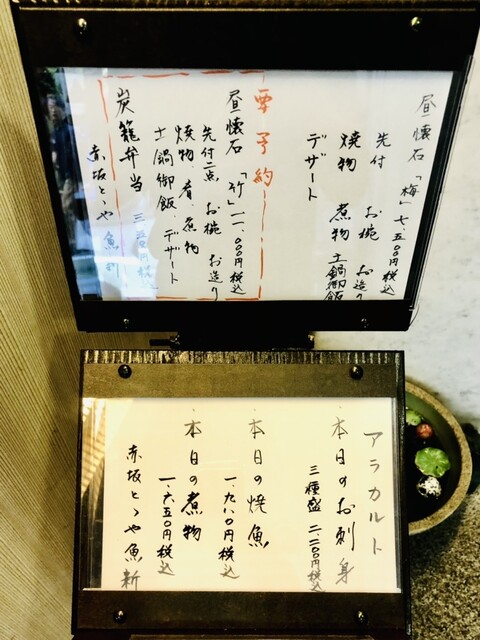 昼懐石「梅」七、五〇〇円税込
先付 お椀 お造り
焼物 煮物 土鍋御飯
デザート
要予約
昼懐石「竹」一一、〇〇〇円税込
先付二点 お椀 お造り
焼物、肴、煮物
土鍋御飯、デザート
炭籠弁当 三、五〇〇円税込
赤坂とゝや魚新
アラカルト
・本日のお刺身
三種盛 二、二〇〇円税込
・本日の焼魚
一、九八〇円税込
・本日の煮物
一、六五〇円税込
赤坂とゝや魚新